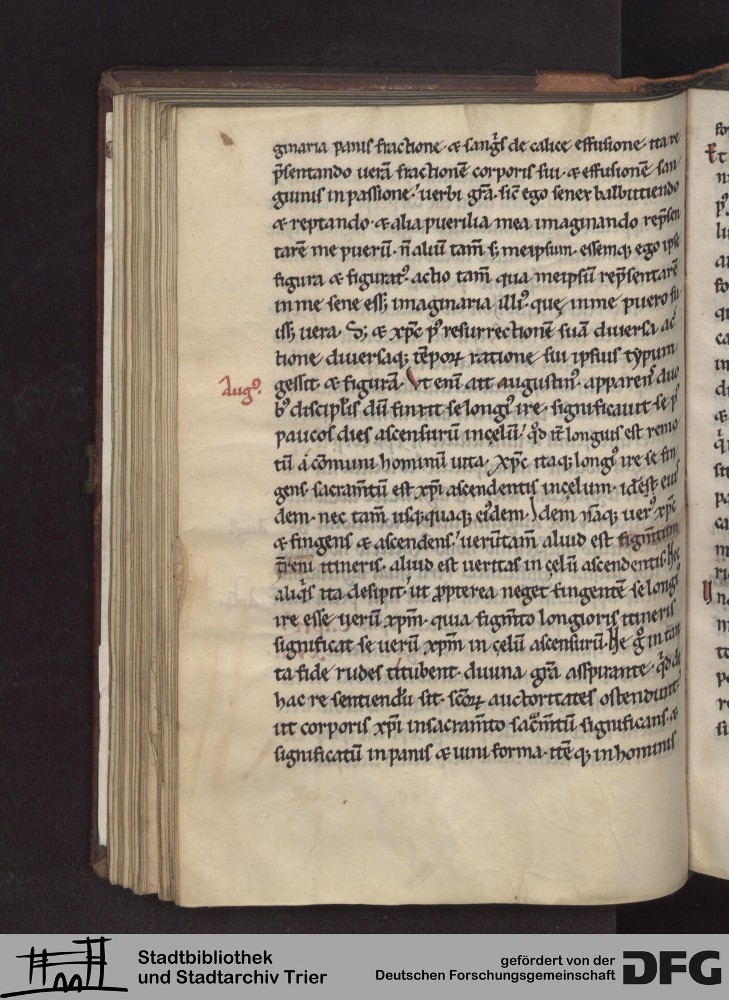 ginaria panis fractione · & sang̾s de calice effusione ita re
p̄sentando uerā fractionē corporis sui · & effusionē san
guinis in passione · uerbi gr̄a · sic̄ ego senex balbutiendo
& reptando · & alia puerilia mea imaginando rep̄sen
tarē me puerū · n̄ aliū tam̄ s; meipsum · essemq; ego ipse
figura & figurat᷒ · actio tam̄ qua meipsū rep̄sentarē
in me sene ess; imaginaria illi᷒ · quę in me puero fu
iss; uera · S; & xp̄c p᷒ resurrectionē suā diuersa ac̄
tione diuersaq; tēporꝝ ratione sui ipsius typum
Aug᷒. gessit & figurā · Vt enī ait augustin᷒ · apparens duo
b᷒ discipl̄is dū finxit se long᷒ ire · significauit se p᷒
paucos dies ascensurū in cęlū · qd̄ ē longius est remo
tū a cōmuni hominū uita · Xp̄c itaq; long᷒ ire se fin
gens · sacram̄tū est xp̄i ascendentis in cęlum · id est eius
dem · nec tam̄ usq;quaq; ei᷒dem · Idem nāq; uer᷒ xp̄c
& fingens & ascendens · uerūtam̄ aliud est figm̄tum
t̄reni itineris · aliud est ueritas in cęlū ascendentis · Nec
aliq̾s ita desipit · ut ꝓpterea neget fingentē se long᷒
ire esse uerū xp̄m · quia figm̄to longioris itineris
significat se uerū xp̄m in cęlū ascensurū · Ne g̊ in tan
ta fide rudes titubent · diuina gr̄a asspirante · qd̄ de
hac re sentiendū sit · sc̄orꝝ auctoritates ostendunt ·
ut corporis xp̄i in sacram̄to sac̄m̄tū significans · &
significatū in panis & uini forma · itēq; in hominis
Stadtbibliothek
und Stadtarchiv Trier
gefördert von der
Deutschen Forschungsgemeinschaft DFG